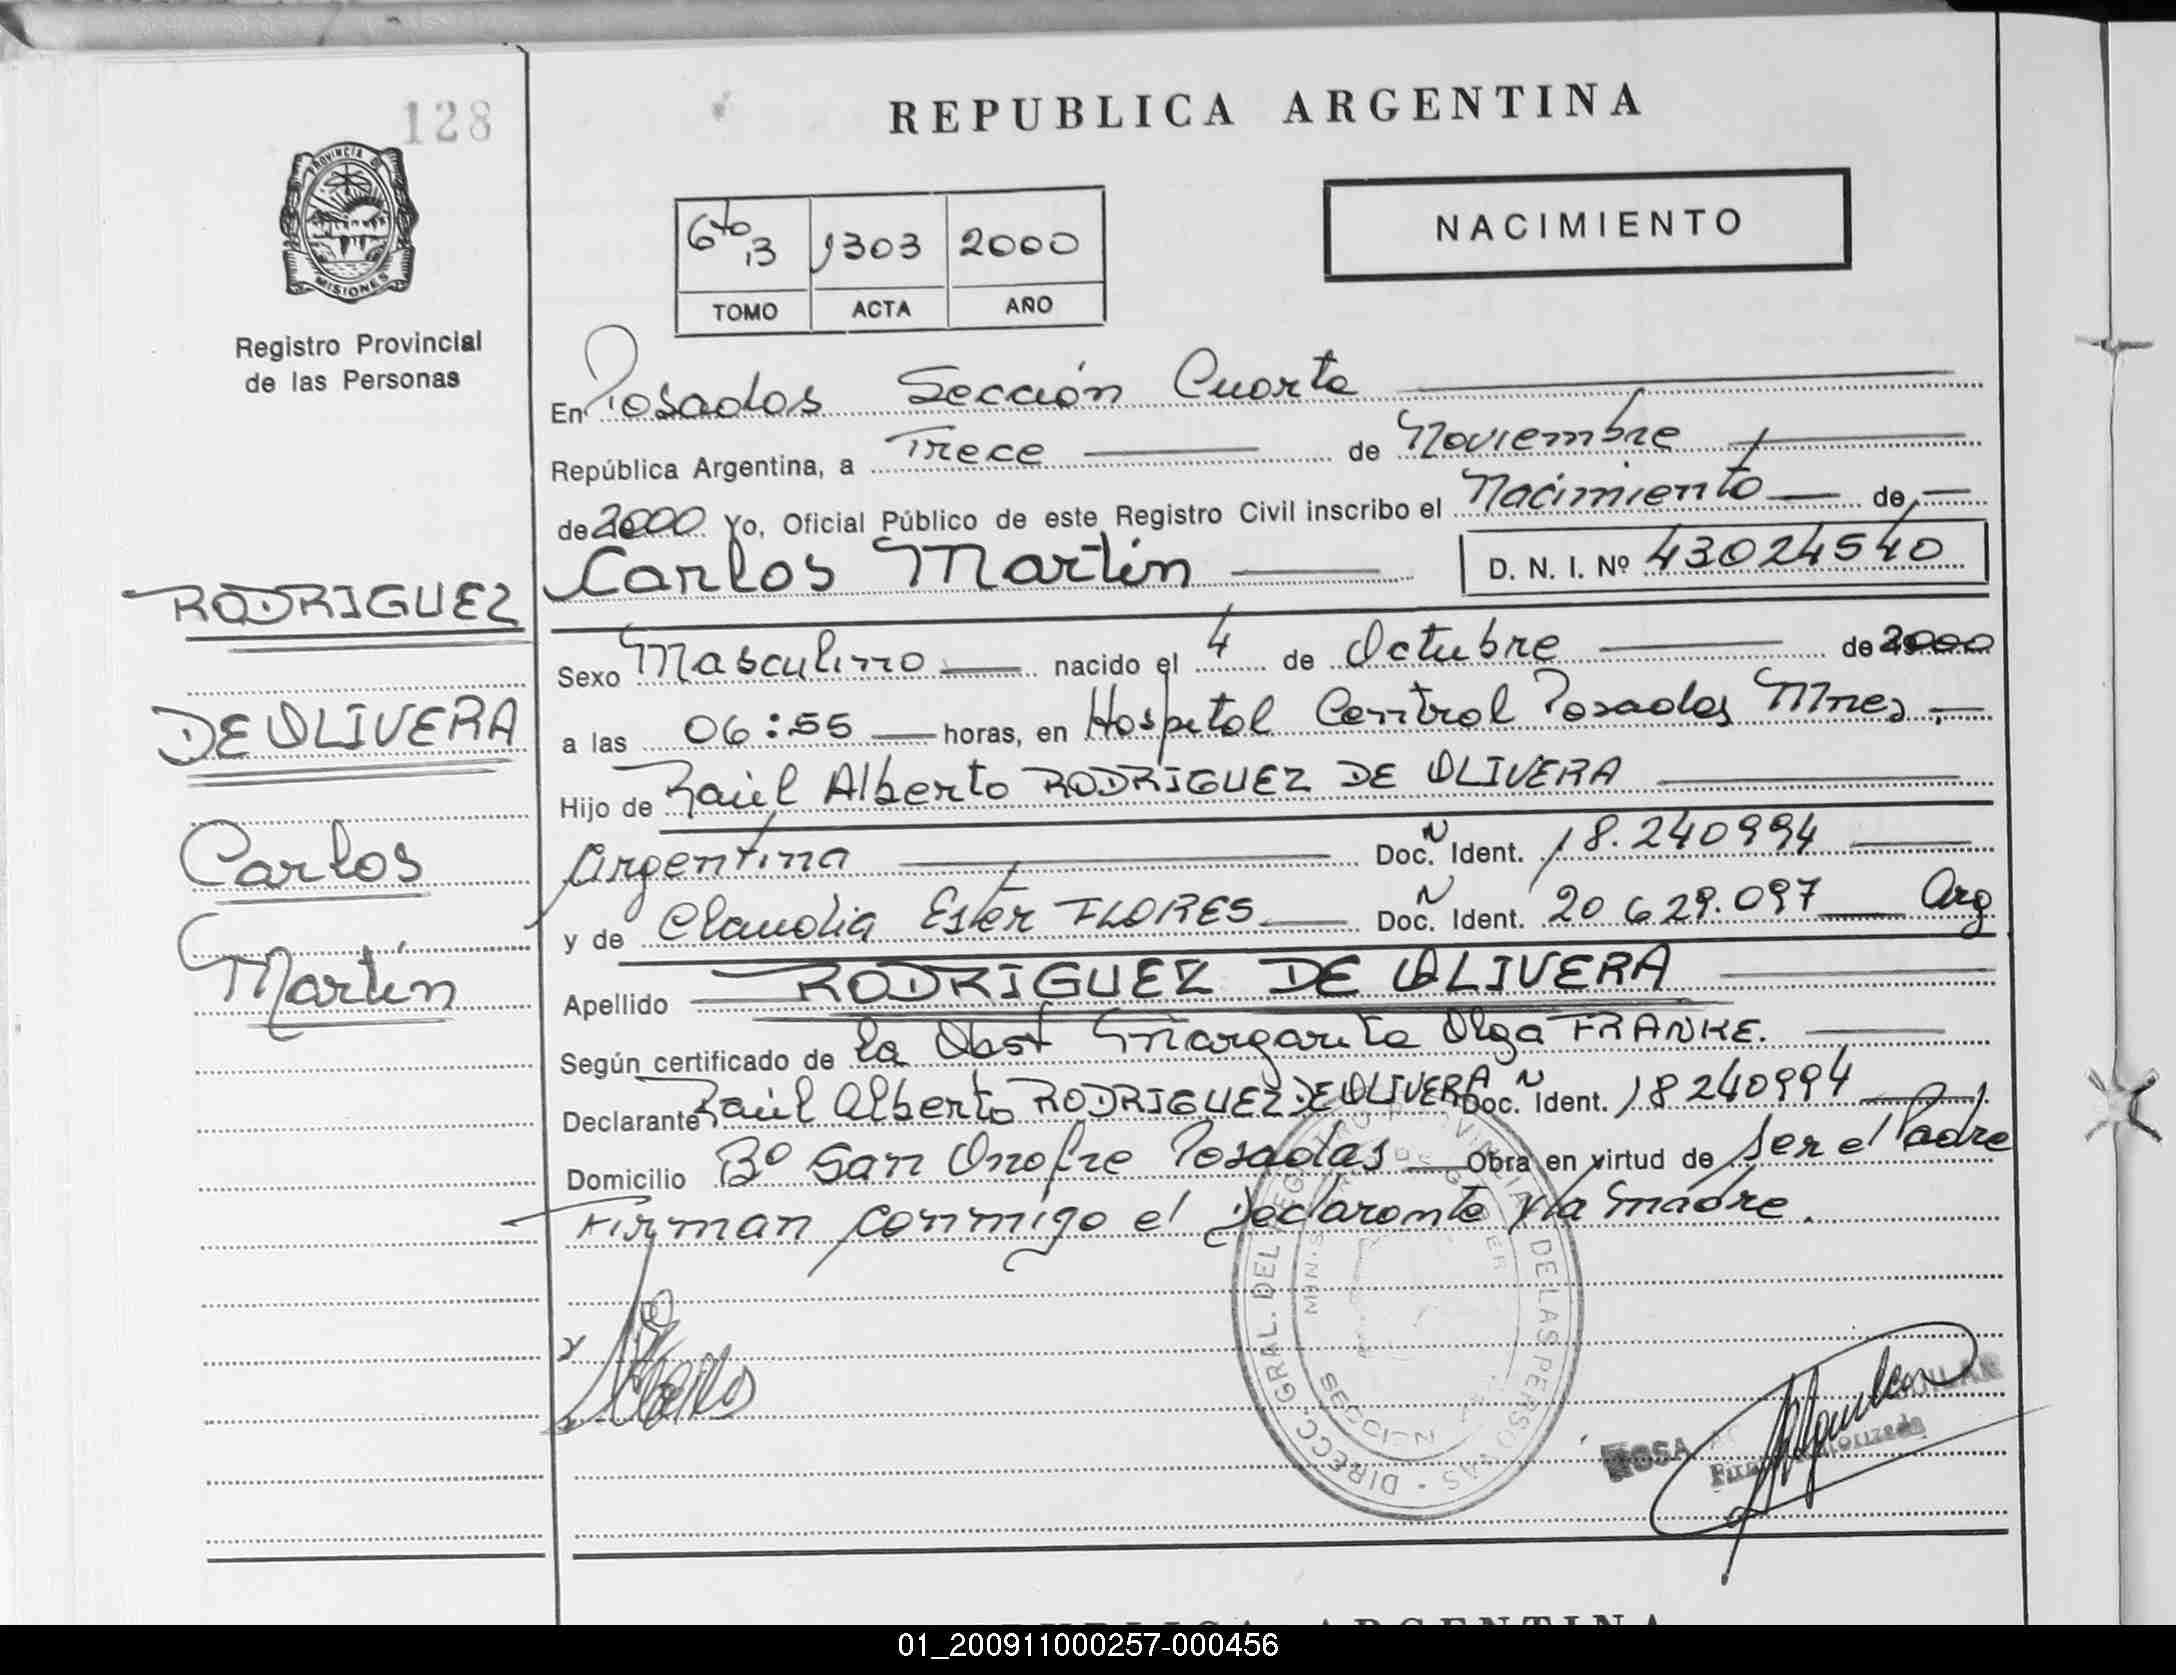 128
REPUBLICA ARGENTINA
PROVINCIA DE
MISIONES
Registro Provincial
de las Personas
NACIMIENTO
6to 13 1303 2000
TOMO ACTA AÑO
En Posadas Sección Cuarta
República Argentina, a Trece de Noviembre
de 2000 Yo, Oficial Público de este Registro Civil inscribo el Nacimiento de
Carlos Martin D. N. I. Nº 43024540
RODRIGUEZ
DE OLIVERA
Carlos
Martín
Sexo Masculino nacido el 4 de Octubre de 2000
a las 06:55 horas, en Hospital Central Posadas Mnes.
Hijo de Raúl Alberto RODRIGUEZ DE OLIVERA
Argentina Doc. N Ident. 18.240994
y de Claudia Ester FLORES Doc. N Ident. 20 629.097 Arg
Apellido RODRIGUEZ DE OLIVERA
Según certificado de la Obst Margarita Olga FRANKE.
Declarante Raúl Alberto RODRIGUEZ DE OLIVERA Doc. N Ident. 18240994
Domicilio Bº San Onofre Posadas Obra en virtud de ser el Padre
Firman conmigo el Declarante y la madre.
DIRECC. GRAL. DEL REGISTRO PROVINCIAL DE LAS PERSONAS
ROSA
01_200911000257-000456
REPUBLICA ARGENTINA